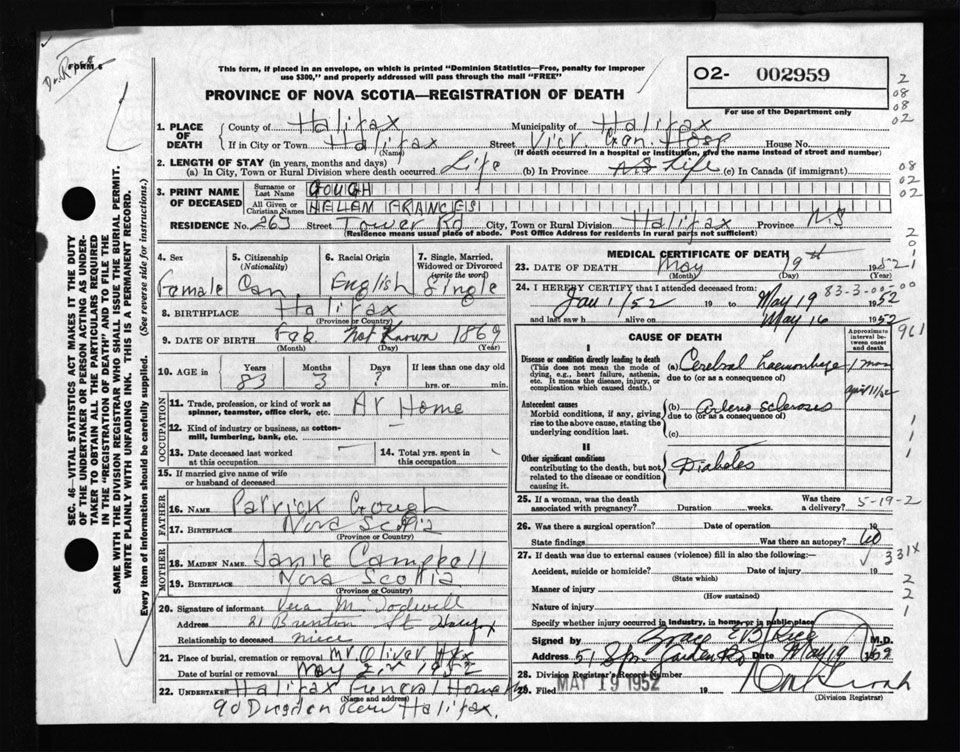 FORM 6
This form, if placed in an envelope, on which is printed "Dominion Statistics—Free, penalty for improper
use $300," and properly addressed will pass through the mail "FREE"
PROVINCE OF NOVA SCOTIA—REGISTRATION OF DEATH
O2- 002959
For use of the Department only
2
08
08
02
1. PLACE OF DEATH
County of Halifax Municipality of Halifax
If in City or Town Halifax Street Vict. Gen. Hosp House No.
(Name) (If death occurred in a hospital or institution, give the name instead of street and number)
2. LENGTH OF STAY (in years, months and days)
(a) In City, Town or Rural Division where death occurred Life (b) In Province N.S Life (c) In Canada (if immigrant)
08
02
02
3. PRINT NAME OF DECEASED
Surname or Last Name GOUGH
All Given or Christian Names HELLEN FRANCES
RESIDENCE No. 263 Street Tower Rd City, Town or Rural Division Halifax Province N.S
(Residence means usual place of abode. Post Office Address for residents in rural parts not sufficient)
SEC. 46—VITAL STATISTICS ACT MAKES IT THE DUTY
OF THE UNDERTAKER OR PERSON ACTING AS UNDER-
TAKER TO OBTAIN ALL THE PARTICULARS REQUIRED
IN THE "REGISTRATION OF DEATH" AND TO FILE THE
SAME WITH THE DIVISION REGISTRAR WHO SHALL ISSUE THE BURIAL PERMIT.
WRITE PLAINLY WITH UNFADING INK. THIS IS A PERMANENT RECORD.
Every item of information should be carefully supplied. (See reverse side for instructions.)
4. Sex
Female
5. Citizenship
(Nationality)
Can
6. Racial Origin
English
7. Single, Married,
Widowed or Divorced
(write the word)
Single
8. BIRTHPLACE Halifax
(Province or Country)
9. DATE OF BIRTH Feb Not Known 1869
(Month) (Day) (Year)
10. AGE in Years 83 Months 3 Days ? If less than one day
hrs. or min.
OCCUPATION
11. Trade, profession, or kind of work as
spinner, teamster, office clerk, etc. At Home
12. Kind of industry or business, as cotton-
mill, lumbering, bank, etc.
13. Date deceased last worked
at this occupation
14. Total yrs. spent in
this occupation
15. If married give name of wife
or husband of deceased
FATHER
16. NAME Patrick Gough
17. BIRTHPLACE Nova Scotia
(Province or Country)
MOTHER
18. MAIDEN NAME Janie Campbell
19. BIRTHPLACE Nova Scotia
(Province or Country)
20. Signature of informant Vera M.
Address 81 Brenton St Halifax
Relationship to deceased niece
21. Place of burial, cremation or removal Mt. Olivet Hfx
Date of burial or removal May 1952
22. UNDERTAKER Halifax Funeral Home
(Name and address)
90 Halifax.
MEDICAL CERTIFICATE OF DEATH
23. DATE OF DEATH May 19th 1952
(Month) (Day)
24. I HEREBY CERTIFY that I attended deceased from: 83-3-00-00
Jan 1/52 19 to May 19 1952
and last saw h alive on May 16 1952
961
CAUSE OF DEATH
Approximate
interval be-
tween onset
and death
I
Disease or condition directly leading to death
(This does not mean the mode of
dying, e.g., heart failure, asthenia,
etc. It means the disease, injury, or
complication which caused death.)
(a) Cerebral haemorrhage
due to (or as a consequence of)
Antecedent causes
Morbid conditions, if any, giving
rise to the above cause, stating the
underlying condition last.
(b) Arterio sclerosis
due to (or as a consequence of)
(c)
II
Other significant conditions
contributing to the death, but not
related to the disease or condition
causing it.
Diabetes
25. If a woman, was the death
associated with pregnancy? Duration weeks. Was there
a delivery? 5-19-2
26. Was there a surgical operation? Date of operation 19
State findings Was there an autopsy?
27. If death was due to external causes (violence) fill in also the following:— 331X
Accident, suicide or homicide? Date of injury 19
(State which)
Manner of injury
(How sustained)
Nature of injury
Specify whether injury occurred in industry, in home, or in public place
Signed by M.D.
Address 51 Spr. Garden Rd Date May 19 1952
28. Division Registrar's Record Number
29. Filed MAY 19 1952 19
(Division Registrar)